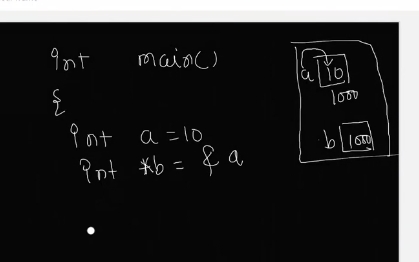 int main()
{
int a = 10
int *b = & a
a 10
1000
b 1000